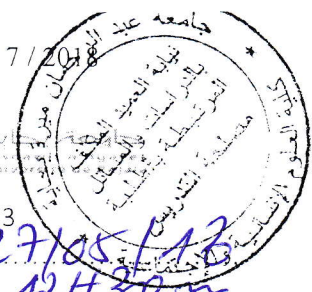 7 / 2018
جامعة عبد الرحمان ميرة بجاية
كلية العلوم الإنسانية والاجتماعية
نيابة العميد المكلف
بالدراسات والمسائل
المرتبطة بالطلبة
مصلحة التدريس
3
27/05/18
12H30